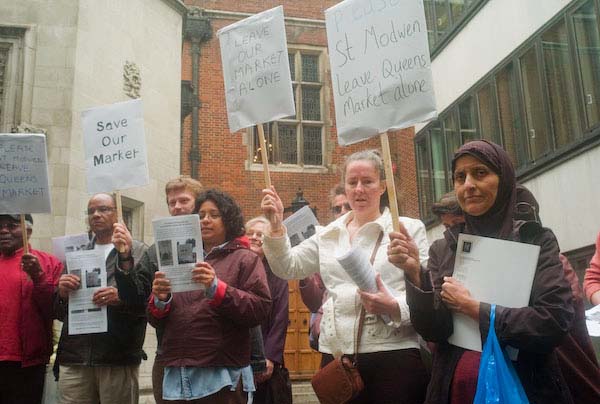 PLEASE
ST MODWEN
LEAVE QUEENS
MARKET ALONE
Save
Our
Market
LEAVE
OUR
MARKET
ALONE
Please
St Modwen
Leave Queens
Market alone